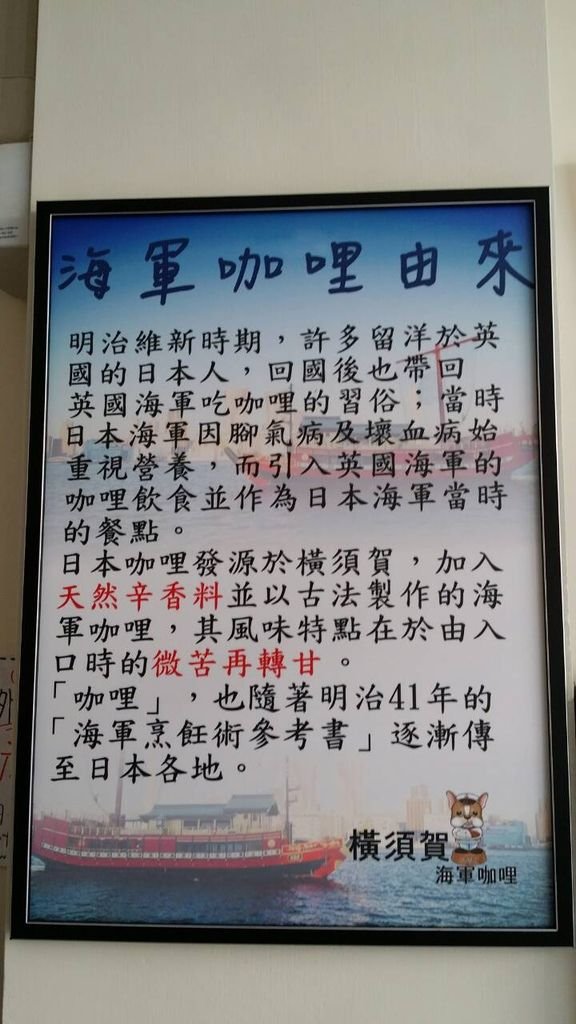 海軍咖哩由來
明治維新時期，許多留洋於英
國的日本人，回國後也帶回
英國海軍吃咖哩的習俗；當時
日本海軍因腳氣病及壞血病始
重視營養，而引入英國海軍的
咖哩飲食並作為日本海軍當時
的餐點。
日本咖哩發源於橫須賀，加入
天然辛香料並以古法製作的海
軍咖哩，其風味特點在於由入
口時的微苦再轉甘。
「咖哩」，也隨著明治41年的
「海軍烹飪術參考書」逐漸傳
至日本各地。
橫須賀
海軍咖哩